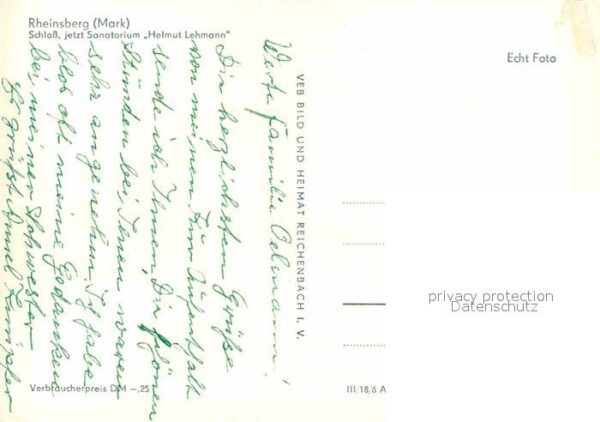 Rheinsberg (Mark)
Schloß, jetzt Sanatorium „Helmut Lehmann"
Echt Foto
Werte Familie
Die herzlichsten Grüße
von meinem Kur Aufenthalt
sende ich Ihnen, Die schönen
Stunden bei Ihnen waren
sehr angenehm. Ich habe
blos oft meine Gedanken
bei meiner Schwester
Es grüßt
VEB BILD UND HEIMAT REICHENBACH I. V.
privacy protection
Datenschutz
Verbraucherpreis DM –,25
III/18/6 A